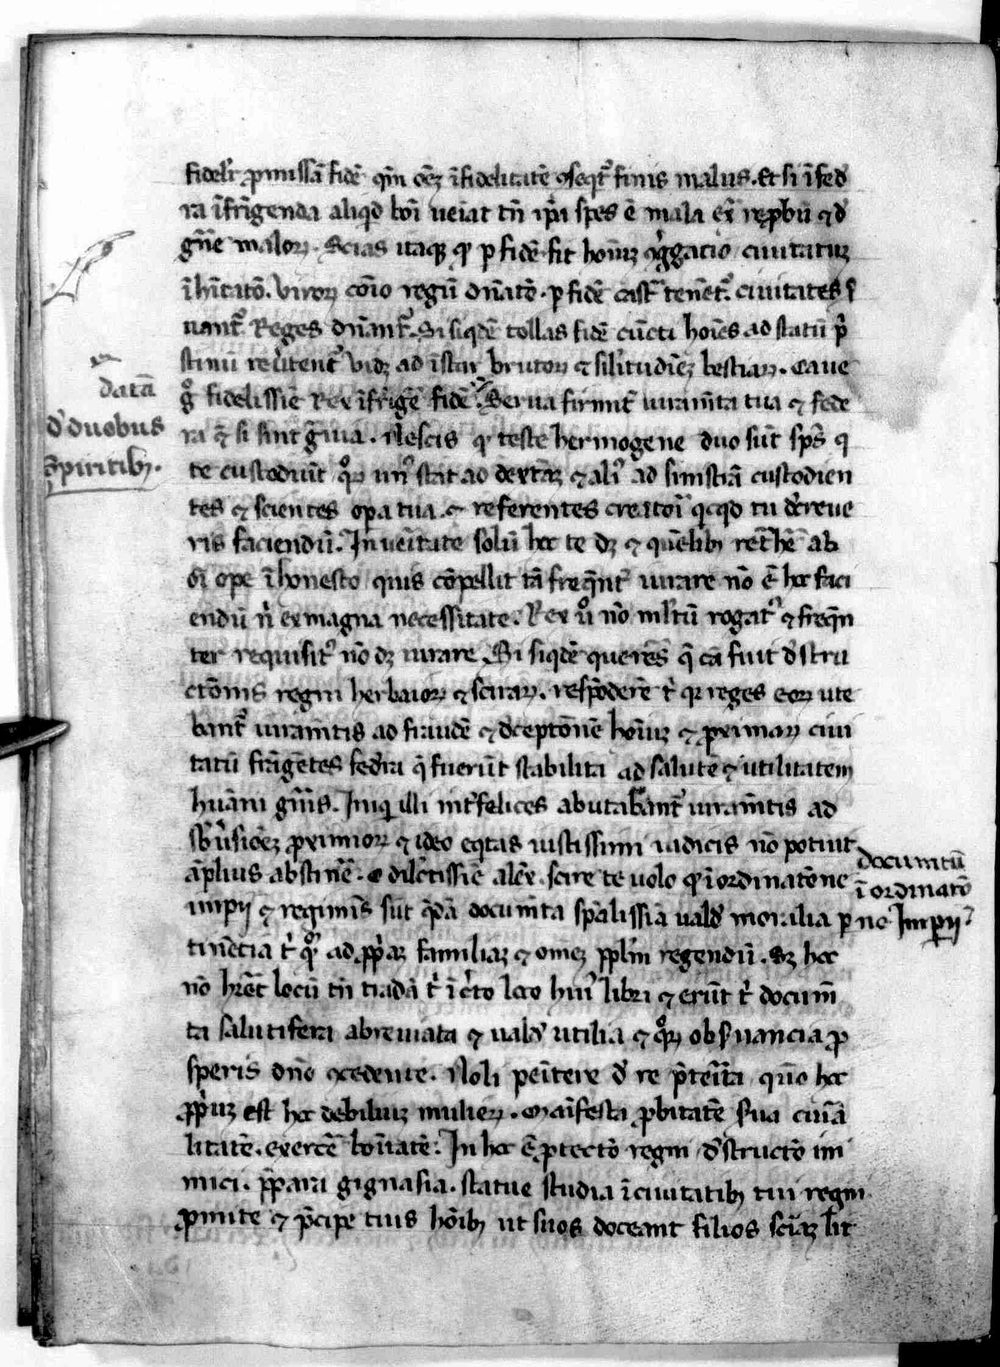 fidelr̃ ꝓmissã fidẽ qm̃ oẽꝫ ĩfidelitatẽ ꝯseqt̃ finis malus. Et si ĩ fed
ra ĩfrĩgenda aliqd boĩ ueiat tñ ip̃a spes ẽ mala ex̃ rep̃bũ ⁊ d̃
gñe malorꝝ. Scias itaqꝫ qd ꝑ fidẽ fit hoĩuꝫ ꝯg̃gacio ciuitatuꝫ
ĩhĩtatõ. Virorꝝ cõio regũ dñatõ. ꝑ fidẽ castr̃ tenẽt᷑. ciuitates s̃
uant᷑. Reges dñant᷑. Si siqdẽ tollas fidẽ cũcti hoĩes ad statũ p̃
stinũ reũtent᷑ vidꝫ ad ĩstar brutorꝝ ⁊ silitudĩeꝫ bestiarꝝ. Caue
g̊ fidelissiẽ Rex ĩfrĩgẽ fidẽ. Serua firmit̃ iuram̃ta tua ⁊ fede
ra ⁊ si sint g̃uia. Nescis qd teste hermogene duo sũt sp̃s q
te custodiũt qꝝ un᷒ stat ad dextaꝫ ⁊ ali᷒ ad sinistrã custodien
tes ⁊ scientes oꝑa tua. ⁊ referentes creatori qcqd tu dcreue
ris faciendũ. In ueĩtate solũ hoc te dꝫ ⁊ quẽlibꝫ ret̃hẽ ab
oĩ oꝑe ĩhonesto quis cõpellit tã freqñt᷑ iurare nõ ẽ hoc faci
endũ n̑ ex magna necessitate. Rex u̇o nõ ml̃tũ rogat᷒ ⁊ freqñ
ter requisit᷒ nõ dꝫ iurare. Si siqdẽ queres q̃ cã fuit dstru
ctõnis regni herbaiorꝝ ⁊ scirarꝝ. respõderẽ t̑ qꝛ reges eorꝝ ute
bant᷑ iuram̃tis ad fraudẽ ⁊ dceptõnẽ hoĩuꝫ ⁊ ꝓximarꝝ ciui
tatũ frãgẽtes fedra q̃ fuerũt stabilita ad salutẽ ⁊ utilitatem
humãni gñis. Iniqi illi infelices abutabant᷑ iuram̃tis ad
sb̃ũsioeꝫ ꝓximorꝝ ⁊ ideo eqtas iustissimi iudicis nõ potuit
ãplius abstinẽ. O dilc̃tissiẽ alex̃. scire te uolo qd ĩ ordinatõne
imꝑij ⁊ regiminis sũt q̃dã docum̃ta sp̃alissiã uald moralia ꝑ
tinẽcia t̑ qͦꝫ ad ꝓp̃aꝫ familiaꝫ ⁊ omeꝫ ppl̃m regendũ. Sꝫ hoc
nõ hr̃et locũ tñ tradã t̑ ĩ c̃to loco hui᷒ libri ⁊ erũt t̑ docum̃
ta salutifera abreuiata ⁊ uald utilia ⁊ qꝝ obs̃uancia ꝓ
speris dño ꝯcedente. Noli penĩtere d re p̃terita qm̃o hoc
ꝓp̃uꝫ est hoc debiliuꝫ mulierꝝ. Maĩfesta ꝓbitatẽ s̃ua ciuã
litatẽ. exercẽ boĩtatẽ. In hoc ẽ ꝓtectõ regni dstructõ ini
mici. p̃para gignasia. statue studia ĩ ciuitatibꝫ tui regni
ꝑmitte ⁊ p̃cipe tuis hoĩbꝫ ut suos doceant filios sciãꝫ lit
datã
d̃ duobus
spiritibꝫ.
documtũ
ĩ ordinatõ
ne Imꝑij